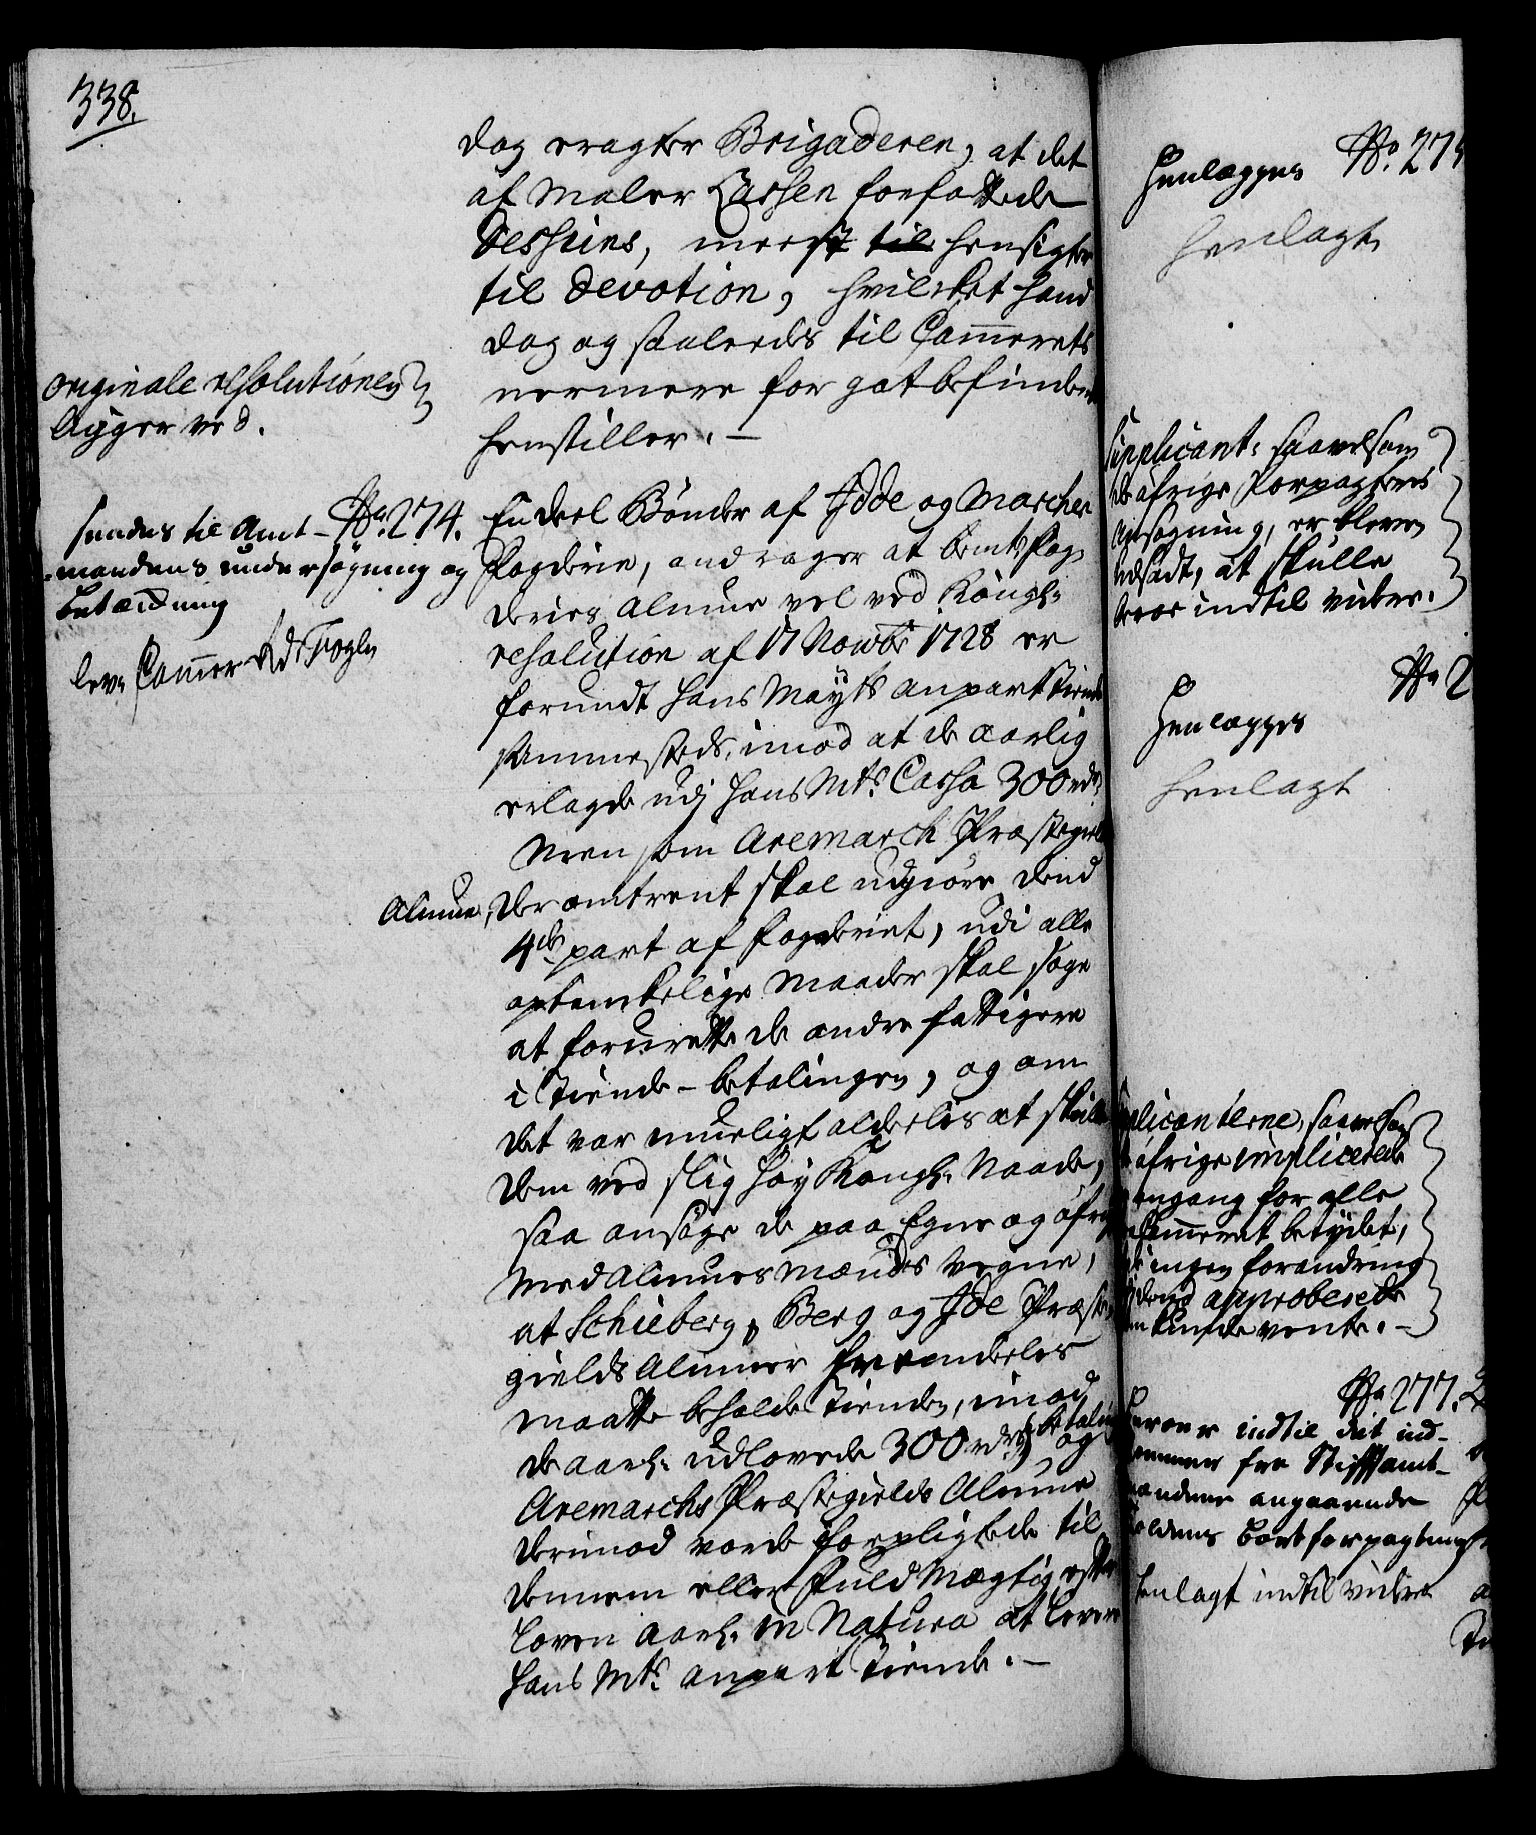 338.
dog eragter Brigaderen, at det
af Maler Cassen forfattede
Desseins, meest til hensigter
til Devotion, hvilcket hand
dog og saaleedes til Cammerets
nermere for gotbefindende
henstiller. —
originale resolutionen
ligger ved.
No. 274.
sendes til Amt-
mandens undersøgning og
betænkning
lev. Cammer
En deel Bønder af Idde og Marcher
Fogderie, andrager at bemte Fog-
deries Almue vel ved Kongl.
resolution af 17 Novbr 1728 er
forundt Hans Mayts anpart Tiende
sammesteds, imod at de aarlig
erlagde udj Hans Mts. Cassa 300 rdr.
Men som Aremarch Præstegields
Almue, der omtrent skal udgiøre dend
4de part af Fogderiet, udi alle
optenckelige Maader skal søge
at forurette de andre fattigere
i Tiende-betalingen, og om
det var mueligt aldeeles at skille
dem ved slig høy Kongl. Naade,
saa ansøge de paa Egne og øfrige
Med Almues Mænds Vegne,
at Schieberg, Berg og Ide Præste-
gields Almuer fremdeeles
maatte beholde Tienden, imod
de aarl. udlovede 300 rdrs betaling, og
Aremarchs Præstegields Almue
derimod vorde forpligtede til
dennem eller Fuldmægtig efter
Loven aarl. in Natura at levere
Hans Mts. anpart Tiende. —
No. 275
Henlægges
henlagt
Supplicant. saavelsom
de øfrige Forpagteres
Ansøgning, er bleven
udsadt, at skulle
beroe indtil videre.
No. 2
Henlægges
henlagt
plicanterne, saavelsom
øfrige implicerede
engang for alle
Cammeret betydet,
ingen forandring
dend approberede
kunde vente. —
No. 277.
beroer indtil det ind-
kommer fra Stiftamt-
manden angaaende
bortforpagtning
henlagt indtil videre